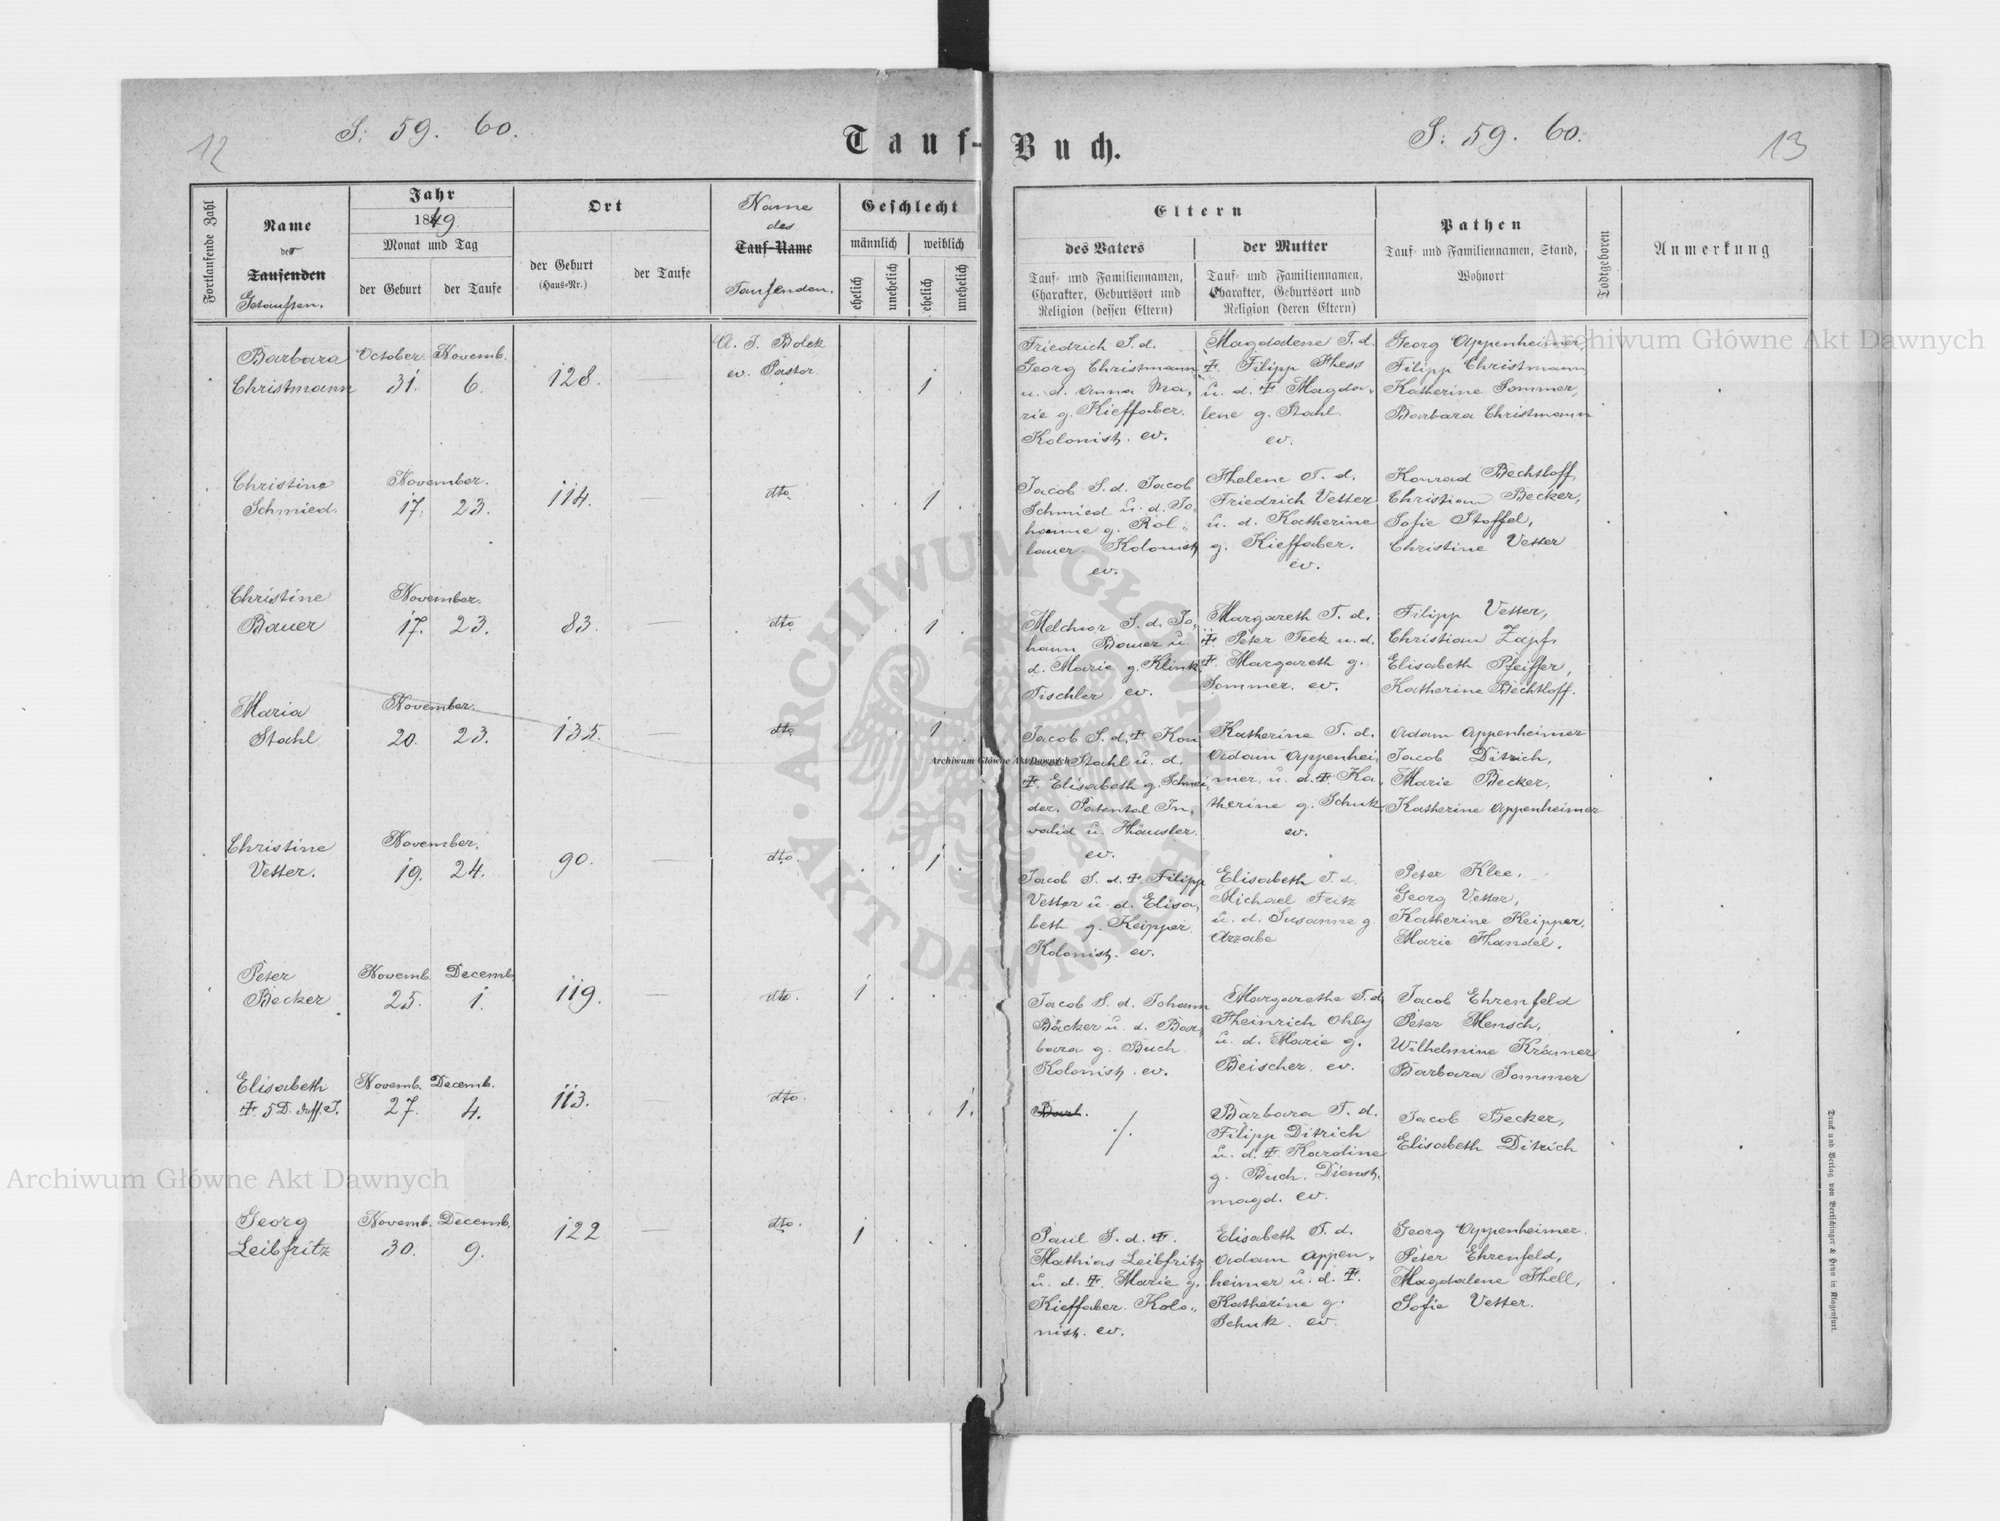 12
S: 59. 60.
Tauf-Buch.
S: 59. 60.
13
Fortlaufende Zahl
Name
der
Taufenden
Getauften.
Jahr
1849.
Monat und Tag
der Geburt
der Taufe
Ort
der Geburt
(Haus-Nr.)
der Taufe
Name
des
Tauf-Name
Taufenden.
Geschlecht
männlich
weiblich
ehelich
unehelich
ehelich
unehelich
Eltern
des Vaters
Tauf- und Familiennamen,
Charakter, Geburtsort und
Religion (dessen Eltern)
der Mutter
Tauf- und Familiennamen,
Charakter, Geburtsort und
Religion (deren Eltern)
Pathen
Tauf- und Familiennamen, Stand,
Wohnort
Todtgeboren
Anmerkung
Barbara
Christmann
October. Novemb.
31. 6.
128. —
A. J. Bolek
ev. Pastor
1
Friedrich S. d.
Georg Christmann
u. d. Anna Ma,,
rie g. Kieffaber.
Kolonist. ev.
Magdalene T. d.
Ŧ. Filipp Hess
u. d. Ŧ Magda,,
lene g. Stahl.
ev.
Georg Oppenheimer,
Filipp Christmann
Katherine Sommer,
Barbara Christmann
Christine
Schmied.
November.
17. 23.
114. —
dto.
1
Jacob S. d. Jacob
Schmied u. d. Jo,,
hanne g. Rol,,
lauer. Kolonist
ev.
Helene T. d.
Friedrich Vetter
u. d. Katherine
g. Kieffaber.
ev.
Konrad Bechtloff
Christian Becker,
Sofie Stoffel,
Christine Vetter
Christine
Bauer
November.
17. 23.
83. —
dto.
1
Melchior S. d. Jo,,
hann Bauer u.
d. Marie g. Klink
Tischler ev.
Margareth T. d.
Ŧ Peter Feek u. d.
Ŧ. Margareth g.
Sommer. ev.
Filipp Vetter,
Christian Zapf,
Elisabeth Pfeiffer,
Katherine Bechtloff.
Maria
Stahl
November.
20. 23.
135.
dto
1
Jacob S. d. Ŧ Kon
Stahl u. d.
Ŧ. Elisabeth g. Schnei,,
der. Patental In,,
valid u. Häusler.
ev.
Katherine T. d.
Adam Oppenhei,,
mer, u. d. Ŧ Ka,,
therine g. Schuk
ev.
Adam Oppenheimer
Jacob Ditrich,
Marie Becker,
Katherine Oppenheimer
Christine
Vetter.
November.
19. 24.
90. —
dto.
1
Jacob S. d. Ŧ. Filipp
Vetter u. d. Elisa,,
beth g. Keipper.
Kolonist. ev.
Elisabeth T. d.
Michael Fritz
u. d. Susanne g.
Arzabe
Peter Klee.
Georg Vetter,
Katherine Keipper,
Marie Handel.
Peter
Becker
Novemb. Decemb.
25. 1.
119. —
dto.
1
Jacob S. d. Johann
Bäcker u. d. Bar,,
bara g. Buch
Kolonist, ev.
Margarethe T. d.
Heinrich Ohly
u. d. Marie g.
Beischer. ev.
Jacob Ehrenfeld
Peter Mensch,
Wilhelmine Krämer
Barbara Sommer
Elisabeth
Novemb. Decemb.
27. 4.
113. —
dto.
1.
Barb.
./.
Barbara T. d.
Filipp Ditrich
u. d. Ŧ. Karoline
g. Buch. Dienst,,
magd. ev.
Jacob Becker,
Elisabeth Ditrich
Georg
Leibfritz
Novemb. Decemb.
30. 9.
122 —
dto.
1
Paul S. d. Ŧ.
Mathias Leibfritz
u. d. Ŧ. Marie g.
Kieffaber. Kolo,,
nist. ev.
Elisabeth T. d.
Adam Oppen,,
heimer u. d. Ŧ.
Katherine g.
Schuk. ev.
Georg Oppenheimer.
Peter Ehrenfeld,
Magdalene Hell,
Sofie Vetter.
Druck und Verlag von Bertschinger & Heyn in Klagenfurt.
Archiwum Główne Akt Dawnych
Archiwum Główne Akt Dawnych
Archiwum Główne Akt Dawnych
ARCHIWUM GŁÓWNE AKT DAWNYCH